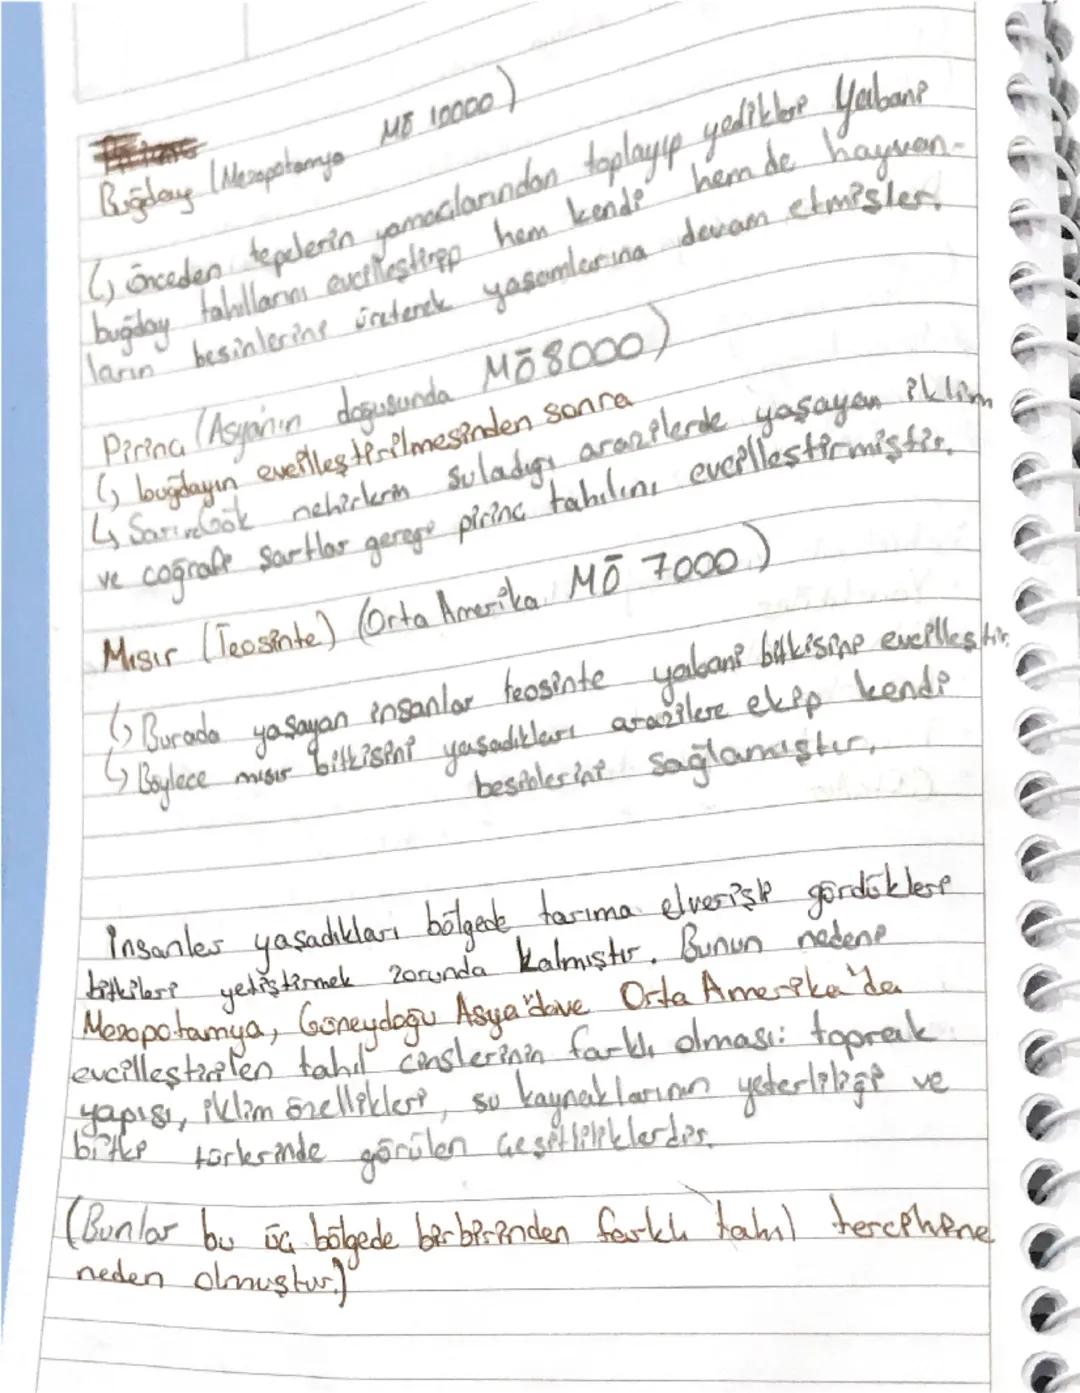 Buğday (Mezopotamya MÖ 10000)
↳ Önceden tepelerin yamaçlarından toplayıp yedikleri Yabani
buğday tahıllarını evcilleştirip hem kendi hem de hayvan-
ların besinlerini üreterek yaşamlarına devam etmişler.
Pirinç (Asya'nın doğusunda MÖ 8000)
↳ buğdayın evcilleştirilmesinden sonra
↳ Sarı ve Gök nehirlerin suladığı arazilerde yaşayan iklim
ve coğrafi şartlar gereği pirinç tahılını evcilleştirmiştir.
Mısır (Teosinte) (Orta Amerika MÖ 7000)
↳ Burada yaşayan insanlar teosinte yabani bitkisini evcilleştir.
↳ Böylece mısır bitkisini yaşadıkları arazilere ekip kendi
besinlerini sağlamıştır.
İnsanlar yaşadıkları bölgede tarıma elverişli gördükleri
bitkileri yetiştirmek zorunda kalmıştır. Bunun nedeni
Mezopotamya, Güneydoğu Asya'da ve Orta Amerika'da
evcilleştirilen tahıl cinslerinin farklı olması: toprak
yapısı, iklim özellikleri, su kaynaklarının yeterliliği ve
bitki türlerinde görülen çeşitliliklerdir.
(Bunlar bu üç bölgede birbirinden farklı tahıl tercihine
neden olmuştur.)